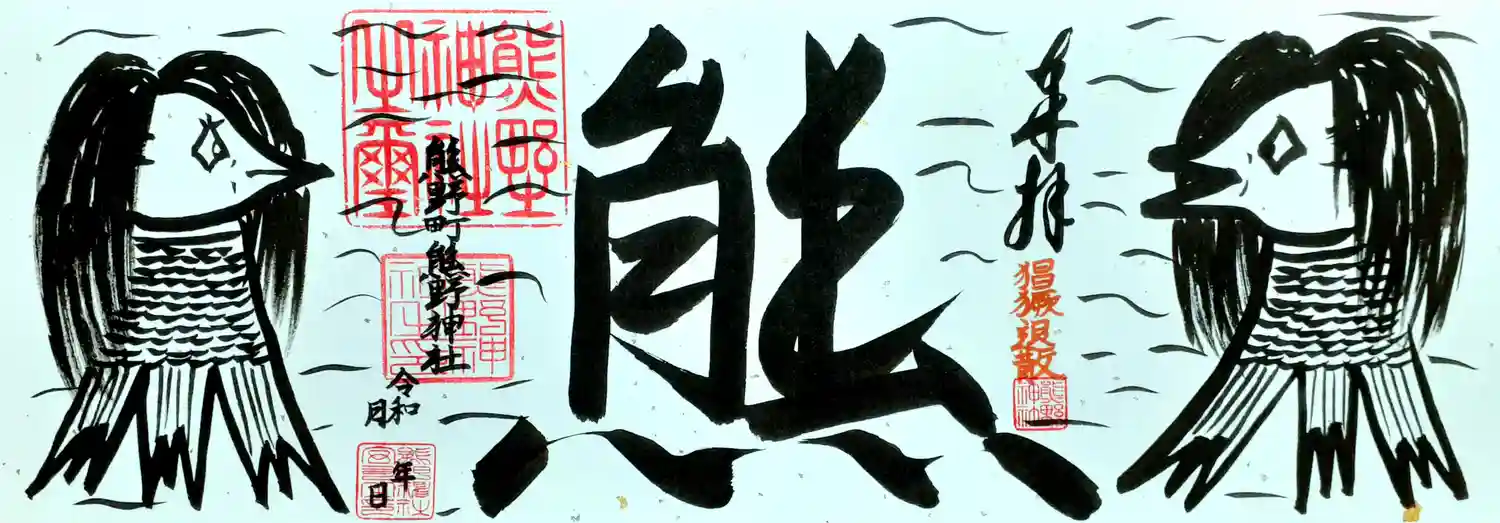 奉拝
猖獗退散
熊野神社
熊
熊野町熊野神社
令和 年
月 日
熊野神社